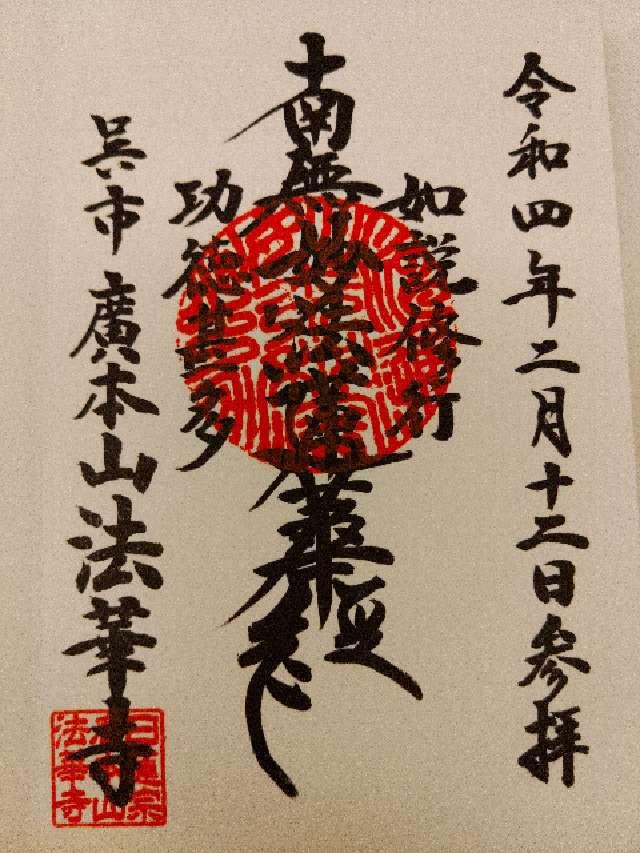 令和四年二月十二日参拝
如説修行
南無妙法蓮華経
功徳甚多
呉市廣本山法華寺
日蓮宗
法華寺